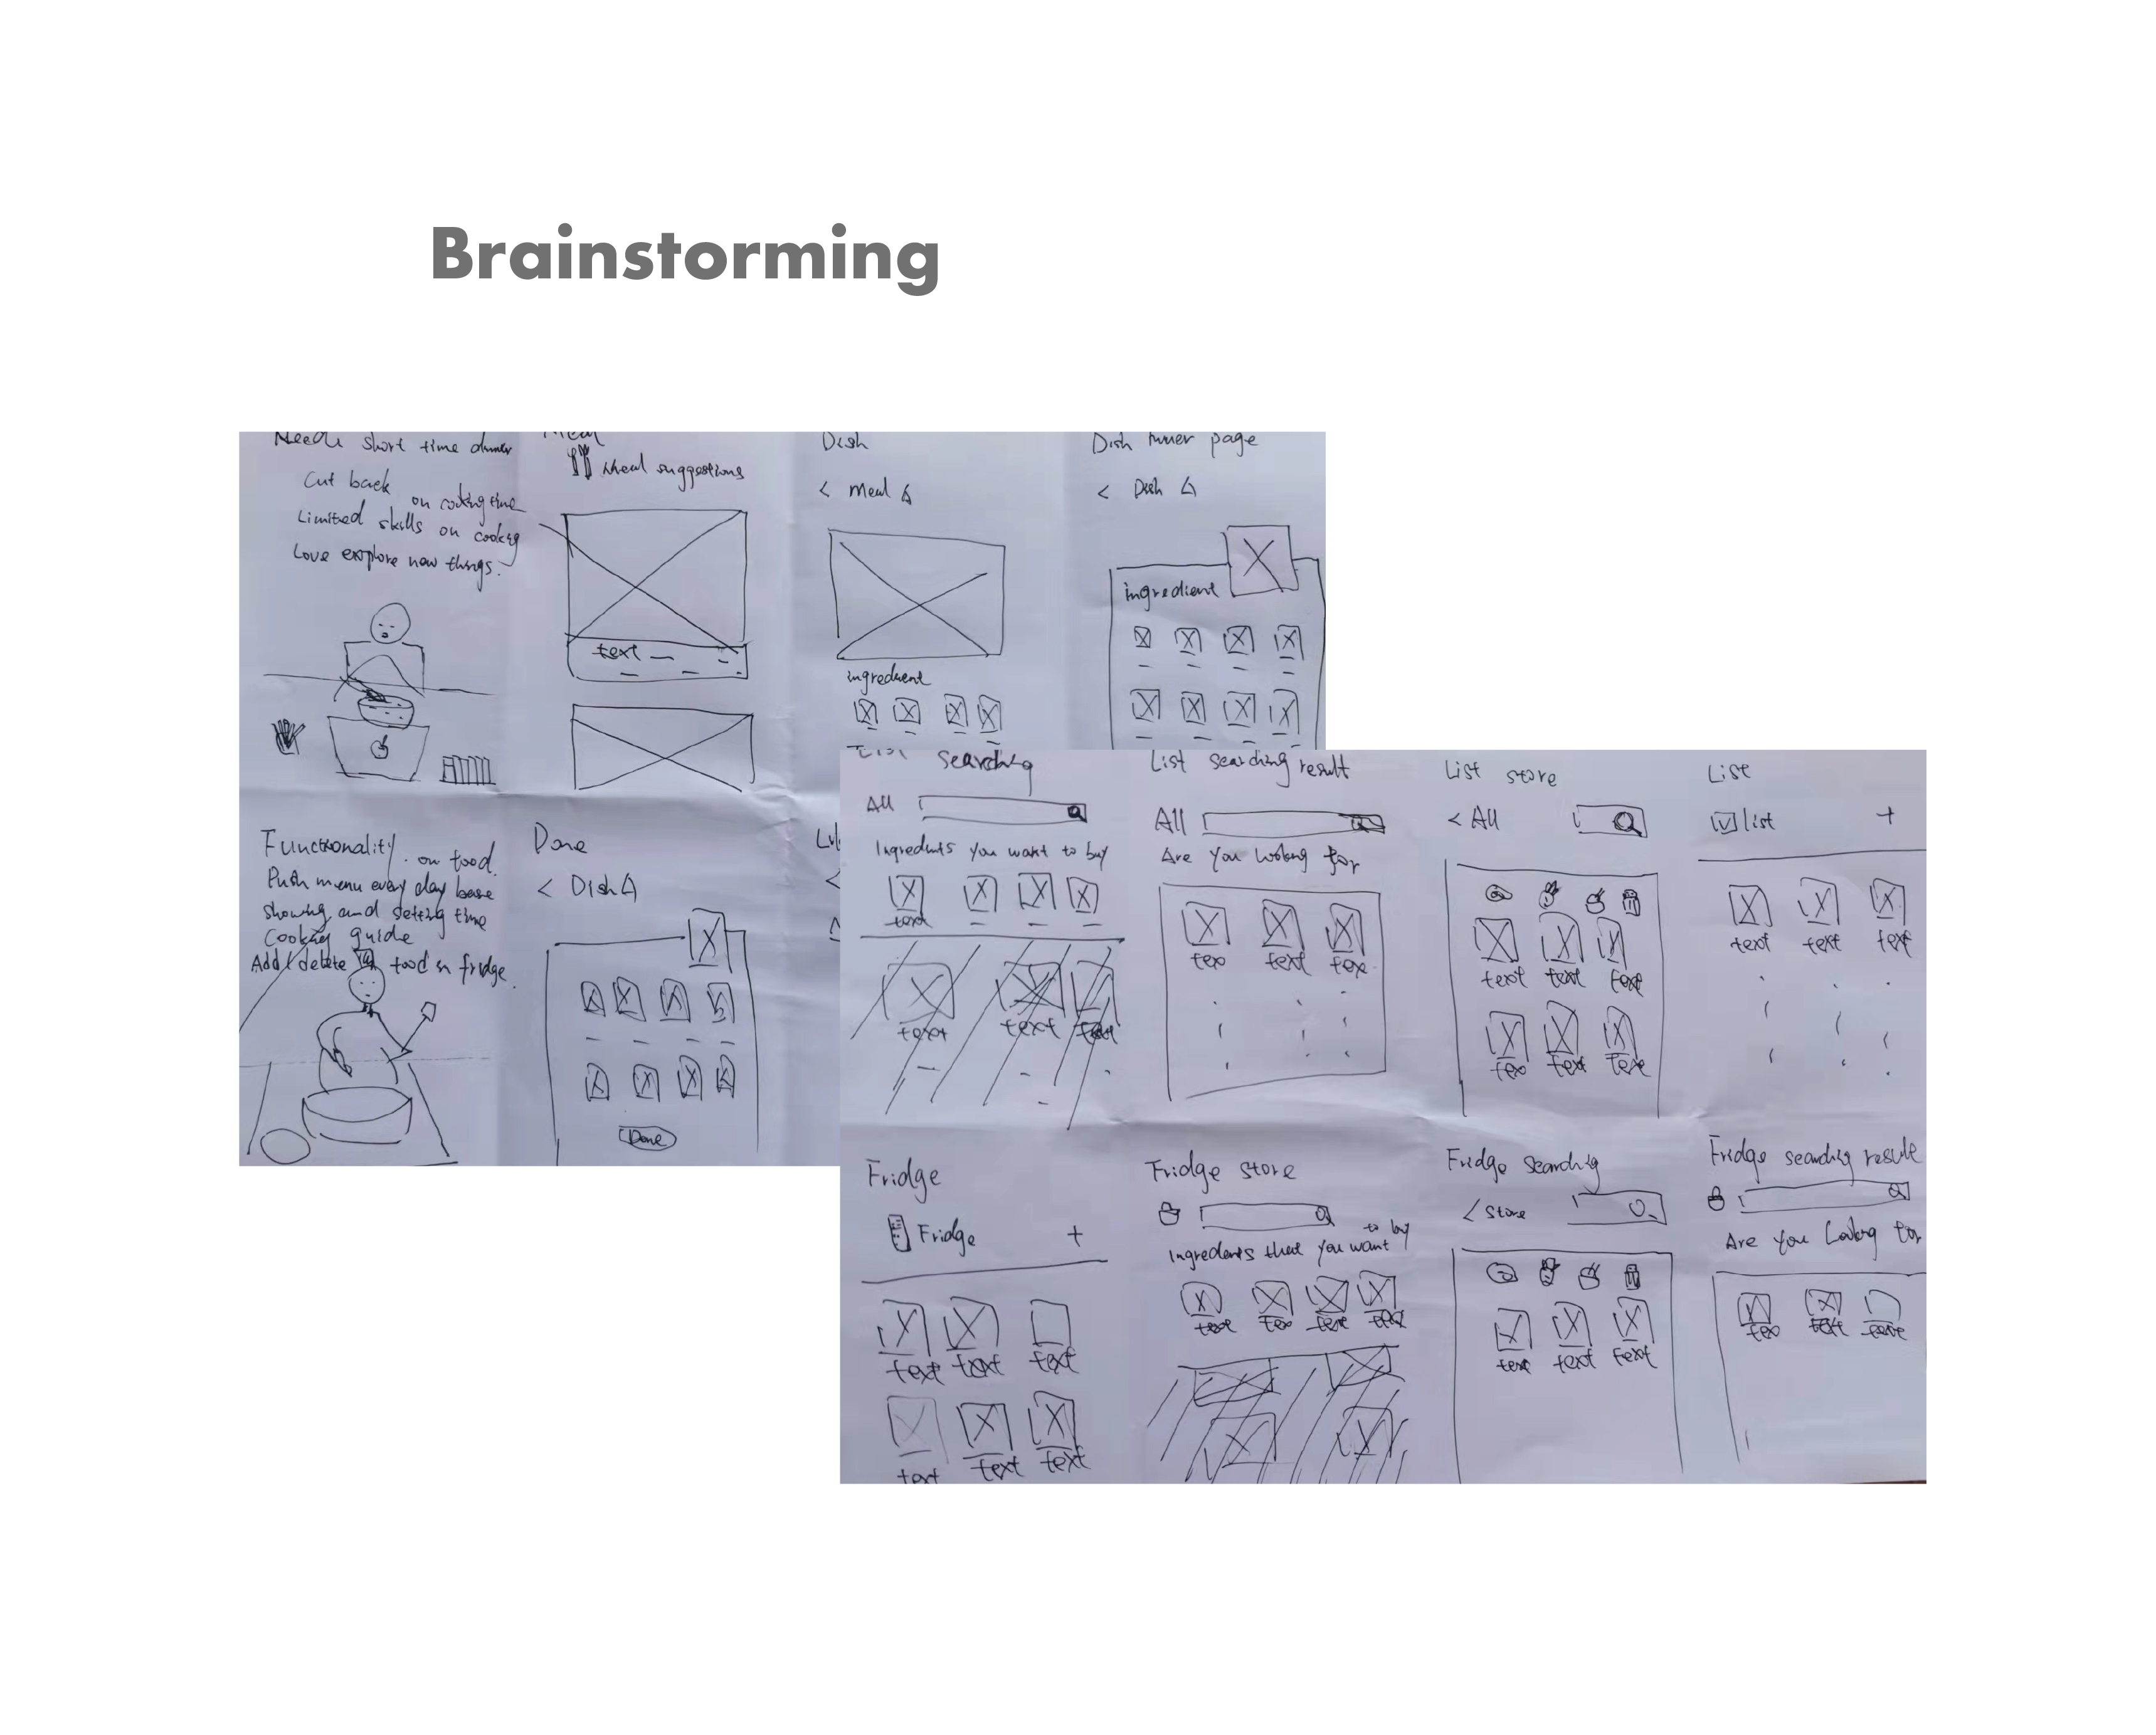 Brainstorming
Needs short time dinner
Cut back on cooking time
Limited skills on cooking
Love explore new things.
Meal
Meal suggestions
text
Dish
< Meal
ingredient
Dish inner page
< Dish
ingredient
Functionality
Push menu every day base on food.
showing and setting time
Cooking guide
Add / delete food in fridge.
Done
< Dish
Done
List searching
All
Ingredients you want to buy
text
text text text
List searching result
All
Are you looking for
tex text tex
List store
< All
text text text
tex text text
List
list +
text text text
Fridge
Fridge +
text text text
text text text
Fridge store
Ingredients that you want to buy
text tex text text
Fridge searching
< store
text text text
Fridge searching result
Are you looking for
tex text text